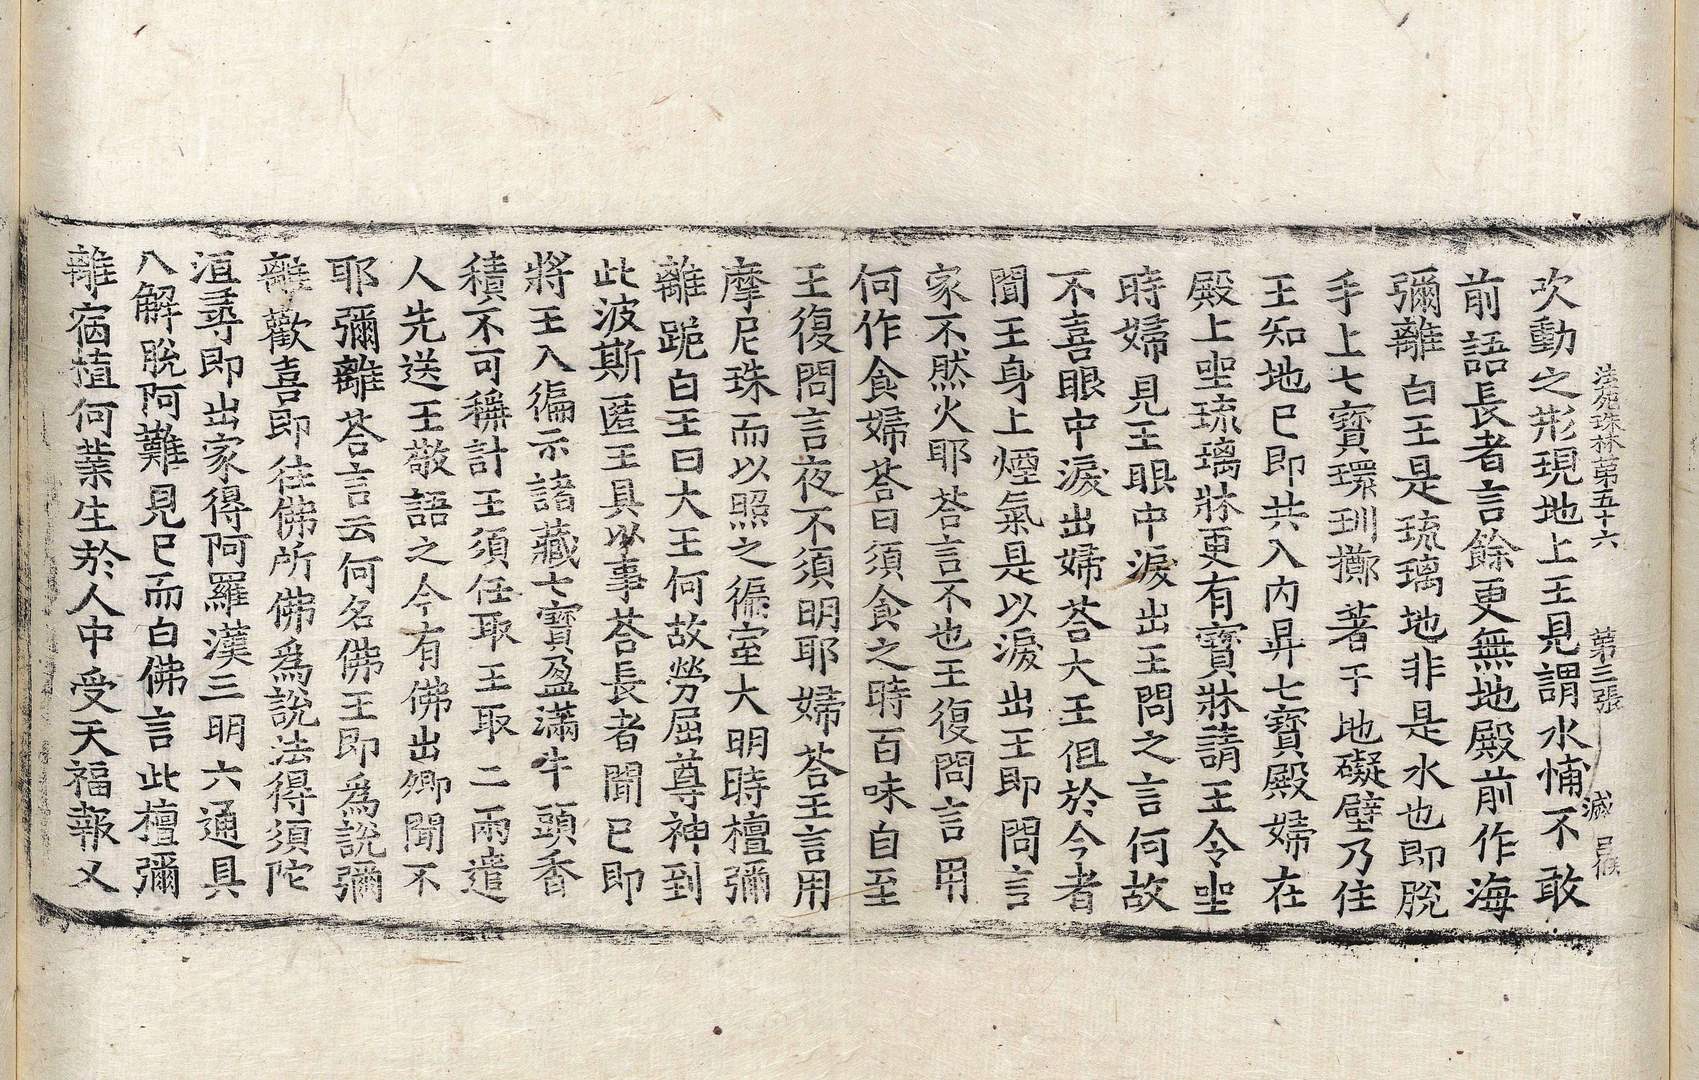 法苑珠林第五十六 第三張 滅
吹動之形現地上王見謂水怖不敢
前語長者言餘更無地殿前作海
彌離白王是琉璃地非是水也即脫
手上七寶環玔擲著于地礙壁乃住
王知地已即共入內昇七寶殿婦在
殿上坐琉璃牀更有寶牀請王令坐
時婦見王眼中淚出王問之言何故
不喜眼中淚出婦荅大王但於今者
聞王身上煙氣是以淚出王即問言
家不然火耶荅言不也王復問言用
何作食婦荅曰須食之時百味自至
王復問言夜不須明耶婦荅王言用
摩尼珠而以照之徧室大明時檀彌
離跪白王曰大王何故勞屈尊神到
此波斯匿王具以事荅長者聞已即
將王入徧示諸藏七寶盈滿牛頭香
積不可稱計王須任取王取二兩遣
人先送王敬語之今有佛出卿聞不
耶彌離荅言云何名佛王即為說彌
離歡喜即往佛所佛為說法得須陀
洹尋即出家得阿羅漢三明六通具
八解脫阿難見已而白佛言此檀彌
離宿植何業生於人中受天福報又